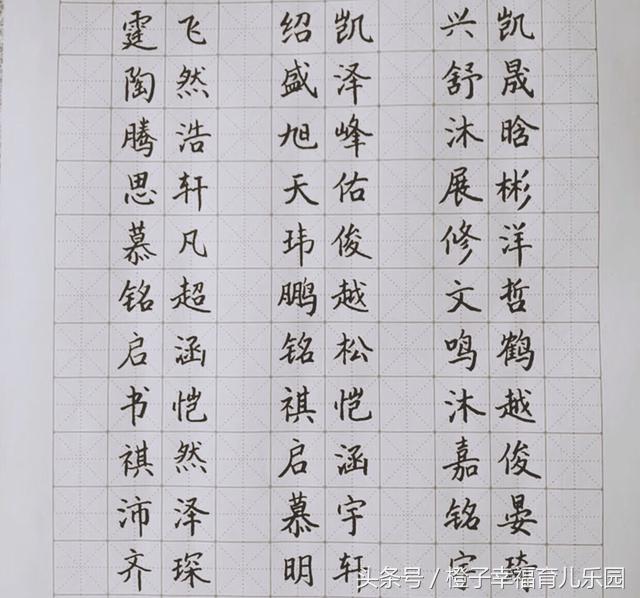 霆飞 绍凯 兴凯
陶然 盛泽 舒晟
腾浩 旭峰 沐晗
思轩 天佑 展彬
慕凡 玮俊 修洋
铭超 鹏越 文哲
启涵 铭松 鸣鹤
书恺 祺恺 沐越
祺然 启涵 嘉俊
沛泽 慕宇 铭晏
齐琛 明轩 宇琦
头条号／橙子幸福育儿乐园